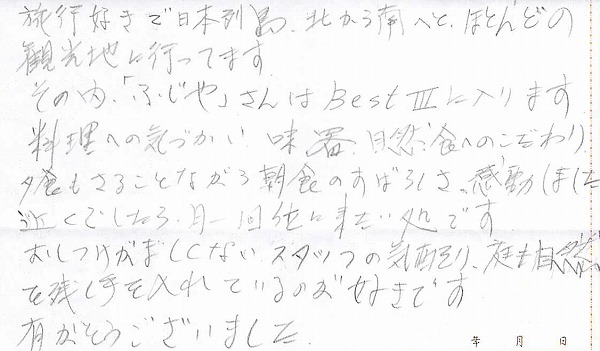 旅行好きで日本列島、北から南へと、ほとんどの
観光地に行ってます
その内、「ふじや」さんはBestⅢに入ります
料理への気づかい 味、器、自然、食へのこだわり
夕食もさることながら朝食のすばらしさ、感動しました
近くでしたら、月一回位に来たい処です
おしつけがましくない、スタッフの気配り、庭も自然
を残し手を入れているのが好きです
有がとうございました
年 月 日